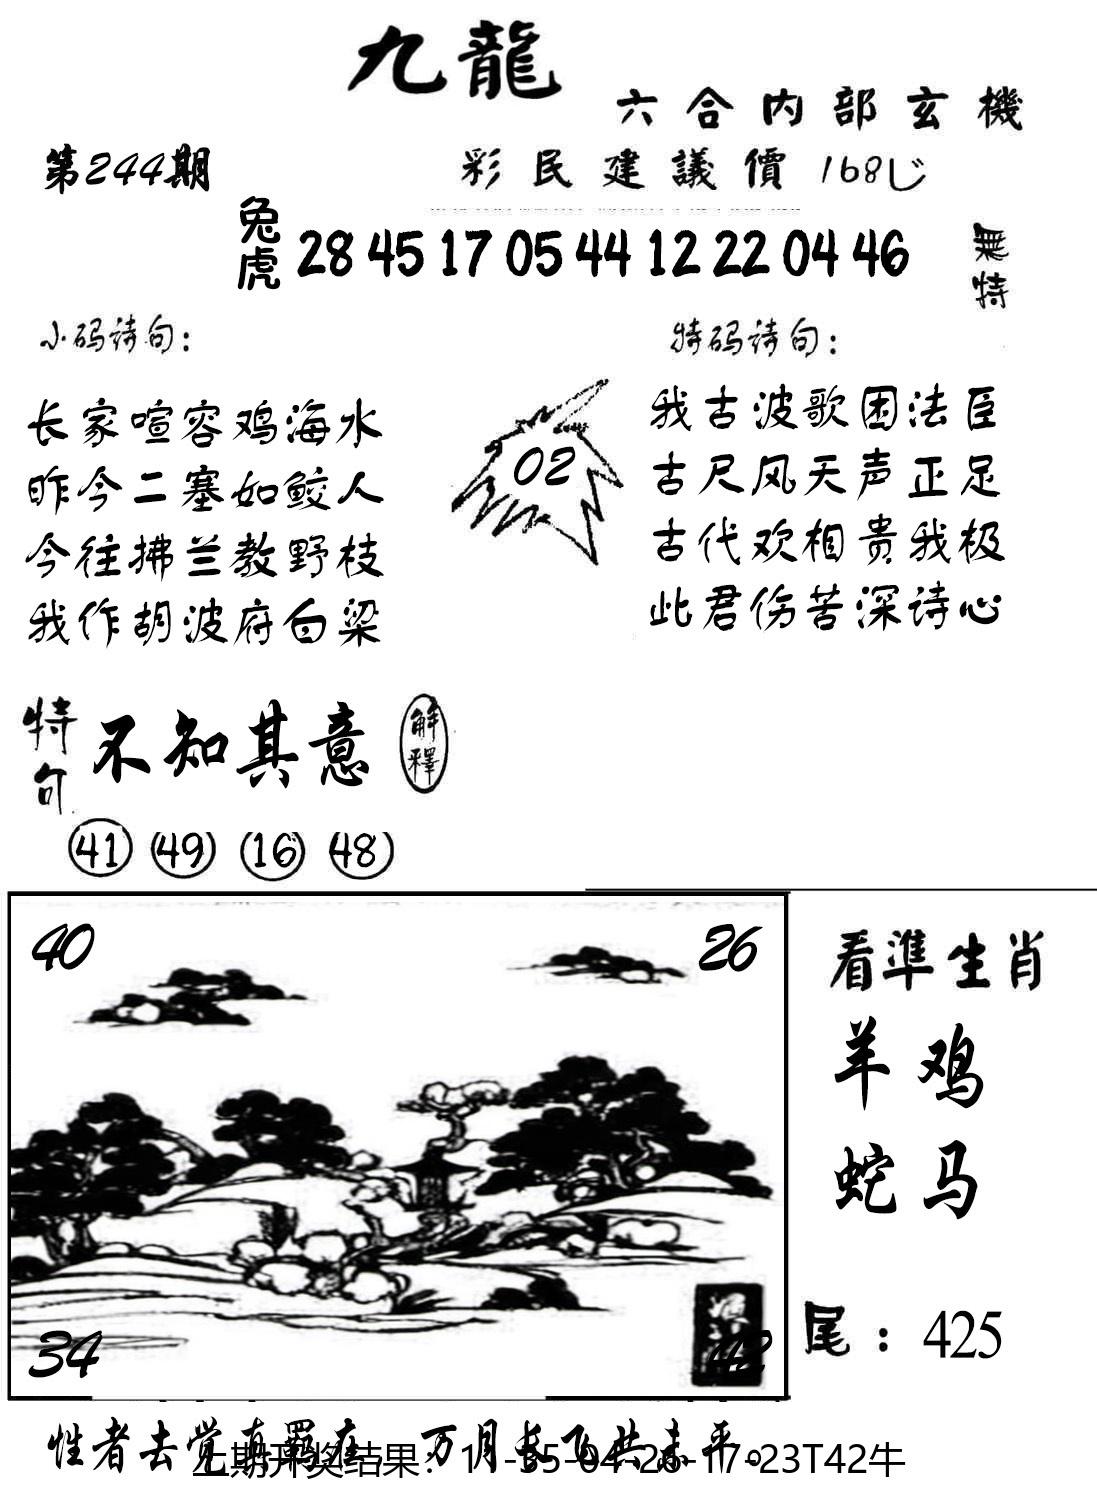 九龍
六合内部玄機
第244期
彩民建議價 168
兔虎 28 45 17 05 44 12 22 04 46 無特
小码诗句：
特码诗句：
长家喧容鸡海水
昨今二塞如鲛人
今往拂兰教野枝
我作胡波府白梁
02
我古波歌困法臣
古尺风天声正足
古代欢相贵我极
此君伤苦深诗心
特句 不知其意 解釋
41 49 16 48
40 26
34 42
看準生肖
羊鸡
蛇马
尾：425
性者去觉真羁在 万月长飞共未平。
上期开奖结果：11-35-04-26-17-23T42牛